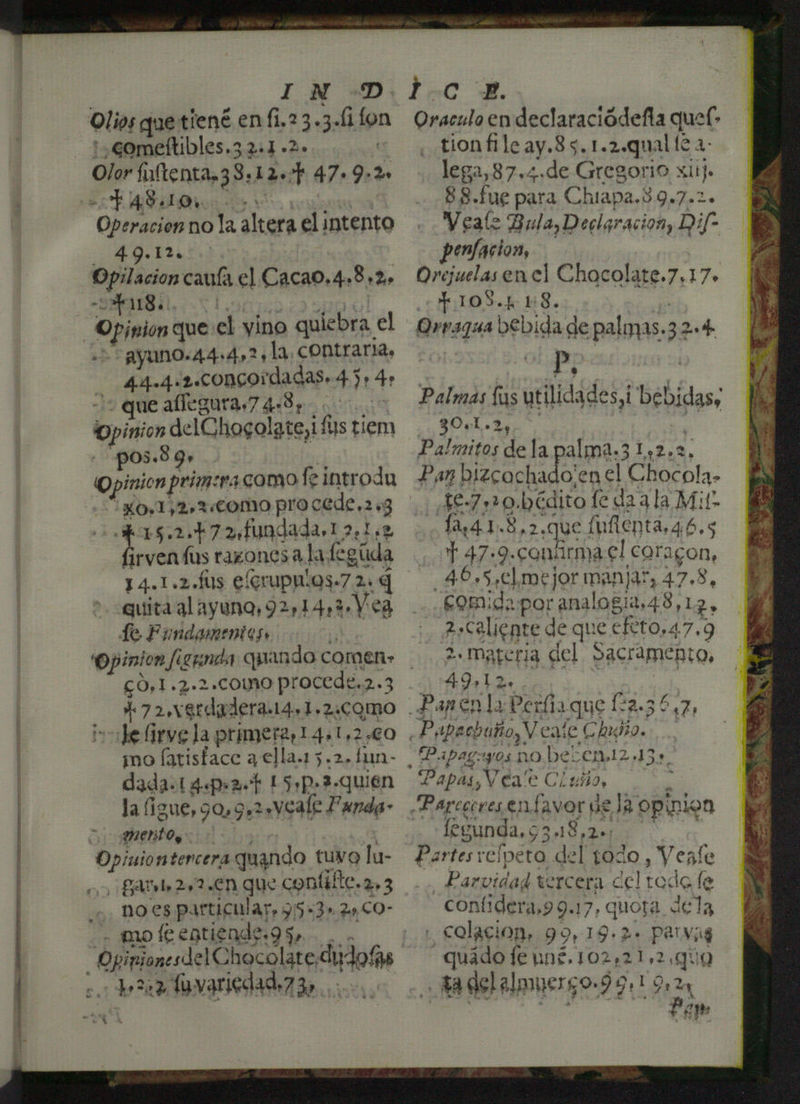 INDICE.
Olios que tienē en si.23.3.si son
comestibles.32.1.2.
Olor sustenta.38.12.† 47.9.2.
† 48.10.
Operacion no la altera el intento
49.12.
Opilacion causa el Cacao.4.8.2.
† 118.
Opinion que el vino quiebra el
ayuno.44.4,2, la contraria,
44.4.2.concordadas.45.4,
que assegura.74.8,
Opinion delChocolate,i sus tiem
pos.89.
Opinion primera como se introdu
xo,1,2,2.como procede.2.3
† 15.2.† 72,fundada.12.1.2
sirven sus razones a la segūda
14.1.2.sus escrupulos.72. q̄
quita al ayuno, 92,14,2.Vea
se Fundamentos.
Opinion segunda quando comen-
çò,1.2.2.como procede.2.3
† 72,verdadera.14.1.2.como
le sirve la primera,14.1,2.co
mo satisface a ella.15.2. fun-
dada.14.p.2.† 15.p.2.quien
la sigue,90.9.2.vease Funda-
mento,
Opinion tercera quando tuvo lu-
gar.1.2,2.en que consiste.2.3
no es particular,95.3.2,co-
mo se entiende.95,
Opiniones del Chocolate dudosas
1.2.2 su variedad.73,
Oraculo en declaraciōdesta ques-
tion si le ay.85.1.2.qual se a-
lega,87.4.de Gregorio xiij.
88.fue para Chiapa.89.7.2.
Vease Bula,Declaracion, Dis-
pensacion,
Orejuelas en el Chocolate.7.17.
† 108.† 18.
Orraqua bebida de palmas.32.4
P.
Palmas sus utilidades,i bebidas,
30.1.2,
Palmitos de la palma.31,2.2.
Pan bizcochado en el Chocola-
te.7.20.bēdito se da a la Mis-
sa,41.8,2.que sustenta,46.5
† 47.9.confirma el coraçon,
46.5.el mejor manjar, 47.8,
comida por analogia.48,12,
2.caliente de que efeto.47.9
2. materia del Sacramento,
49.12.
Pan en la Persia que sea.36,7,
Papachuño,Vease Chuño.
Papagayos no beben.12.13.
Papas,Vease Chuño,
Pareceres en favor de la opinion
segunda,93.18,2.
Partes respeto del todo, Vease
Parvidad tercera del todo se
considera.99.17, quota de la
colacion, 99, 19.2. parvas
quādo se unē.102,21,2,quo
ta del almuerço.99.19,2,